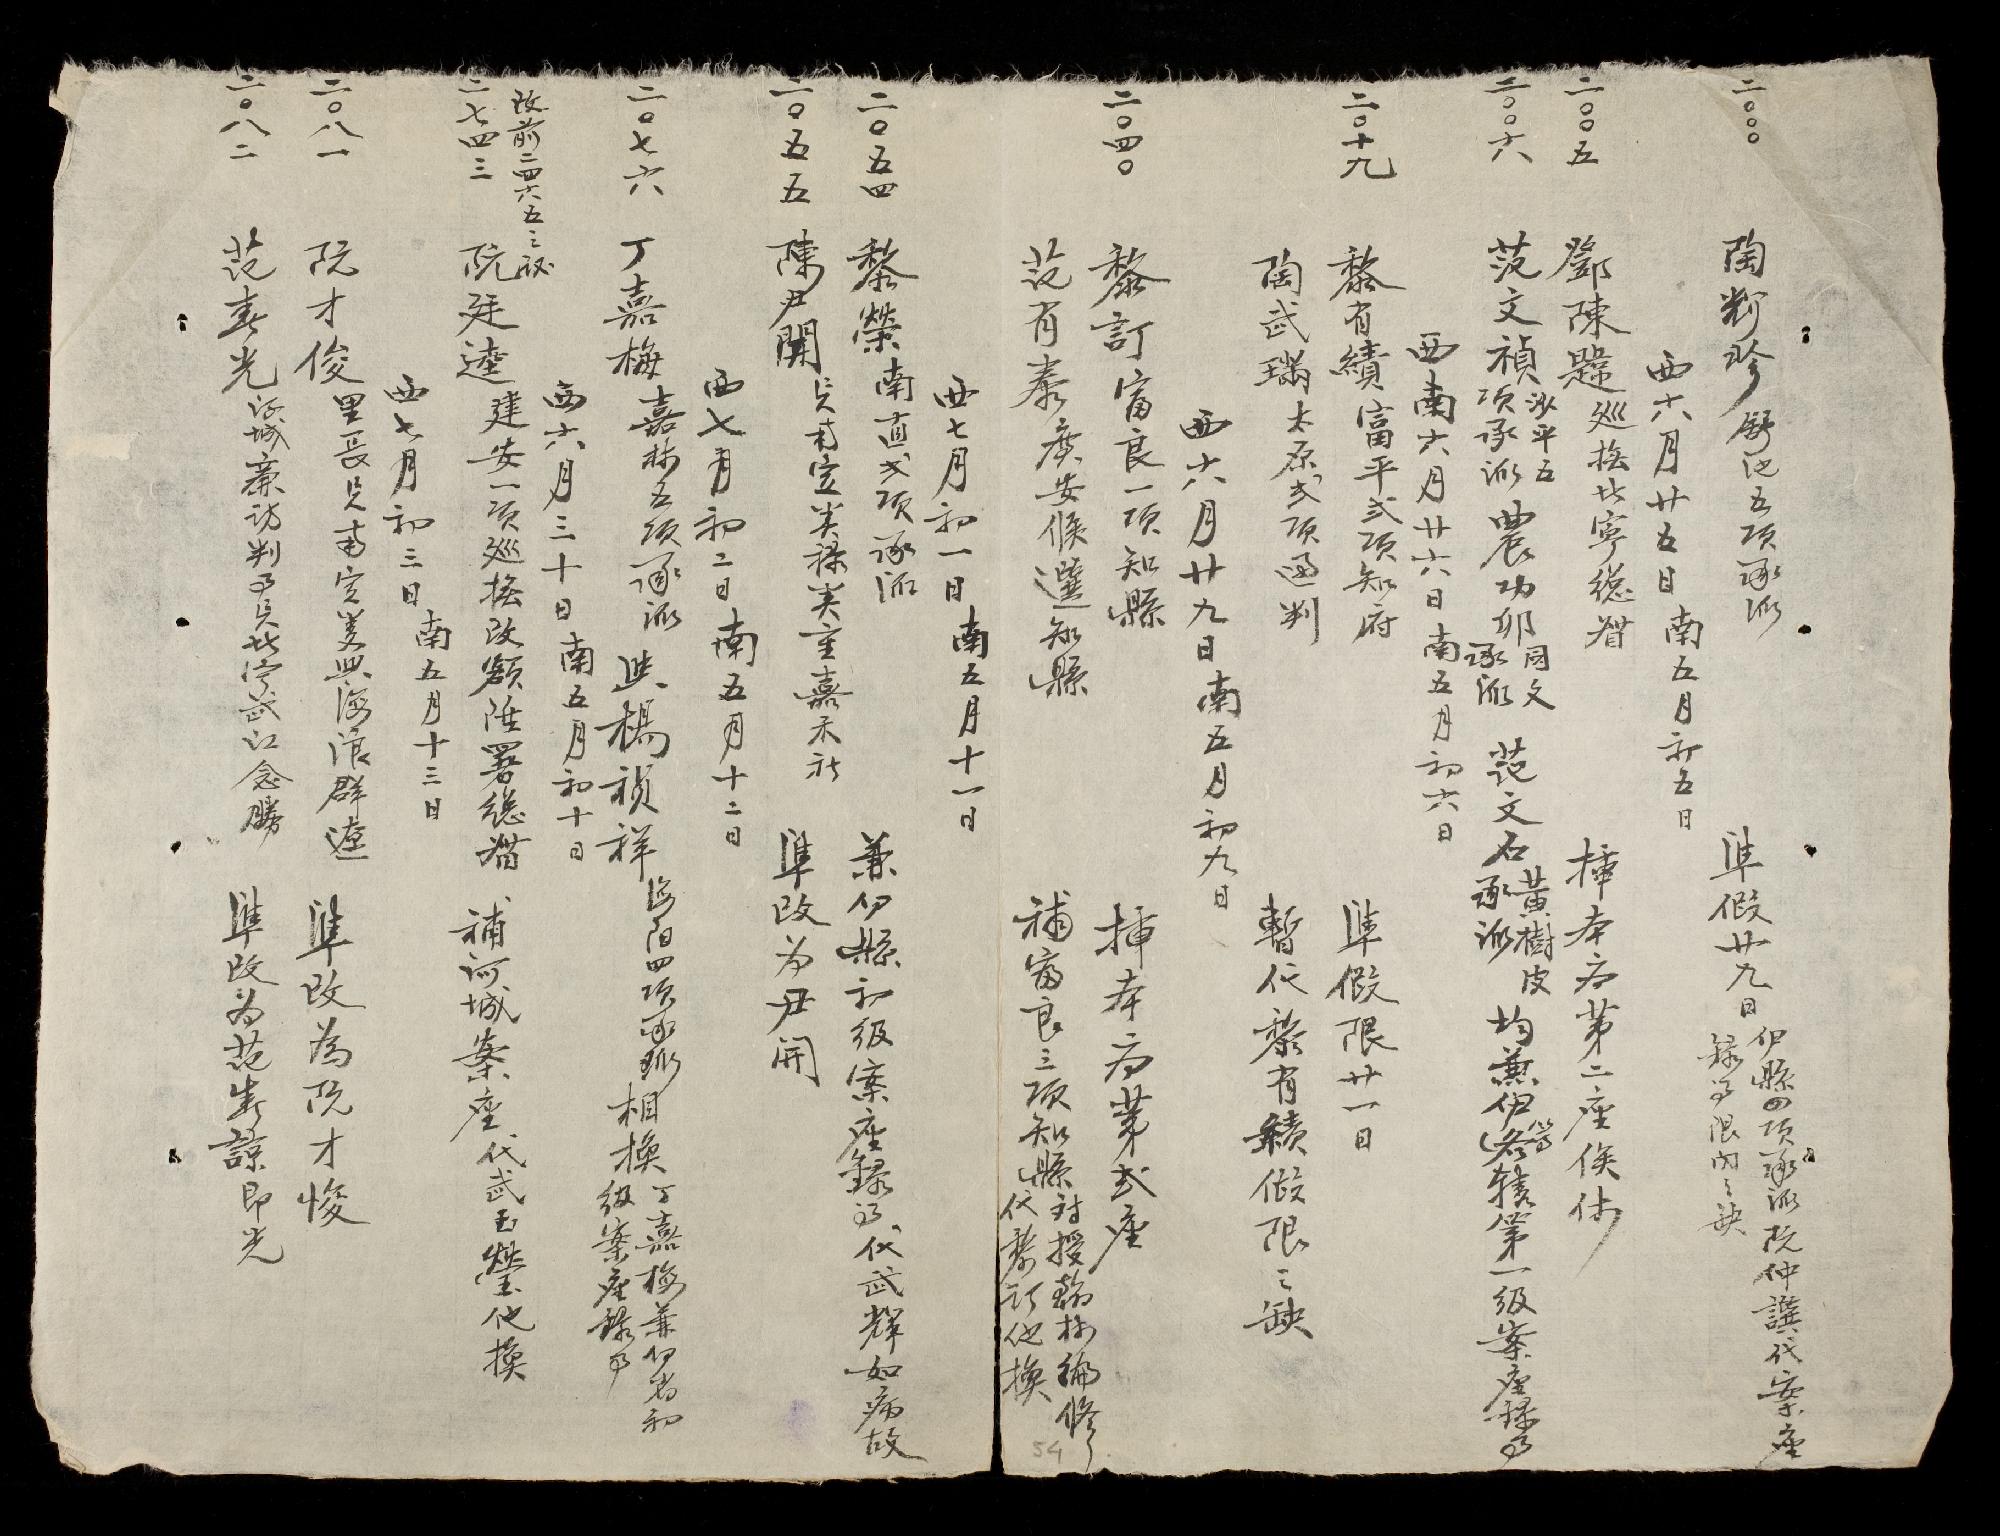 二〇〇〇 陶珍 舒池五項承派 準假廿九日 伊縣四項承派阮仲譔代案座
錄事限內之缺
西六月廿五日南五月初五日
二〇〇五 鄧陳 巡撫北寧總督 擇本府第二座俟补
二〇〇六 范文禎 沙平五項承派 農功卯 同文承派 范文石 黃樹皮承派 均兼伊等各轄第一級案座錄事
西南六月廿六日南五月初六日
二〇十九 黎有績 富平弍項知府 準假限廿一日
陶武瑞 太原弍項通判 暫代黎有績假限之缺
西六月廿九日南五月初九日
二〇四〇 黎訂 富良一項知縣 擇本府第弍座
范有泰 廣安候選知縣 補富良三項知縣 对授翰林編修
代黎訂他換
西七月初一日南五月十一日
二〇五四 黎榮 南直弍項承派 兼伊縣初級案座錄事代武輝如病故
二〇五五 陳尹開 貝南定 美祿 嘉禾社 準改为尹開
西七月初二日南五月十二日
二〇七六 丁嘉梅 嘉林五項承派 楊禎祥 海陽四項承派 相換 丁嘉梅兼伊省初級案座錄事
西六月三十日南五月初十日
改前二四六五之
二七四三 阮廷達 建安一項巡撫改額陞署總督 補河城案座 代武玉瑩他換
西七月初三日南五月十三日
二〇八一 阮才俊 里長貝南定 海浪群遼 準改為阮才悛
二〇八二 范春光 河城廉訪判事貝北寧武江念勝 準改为范春諒即光
54